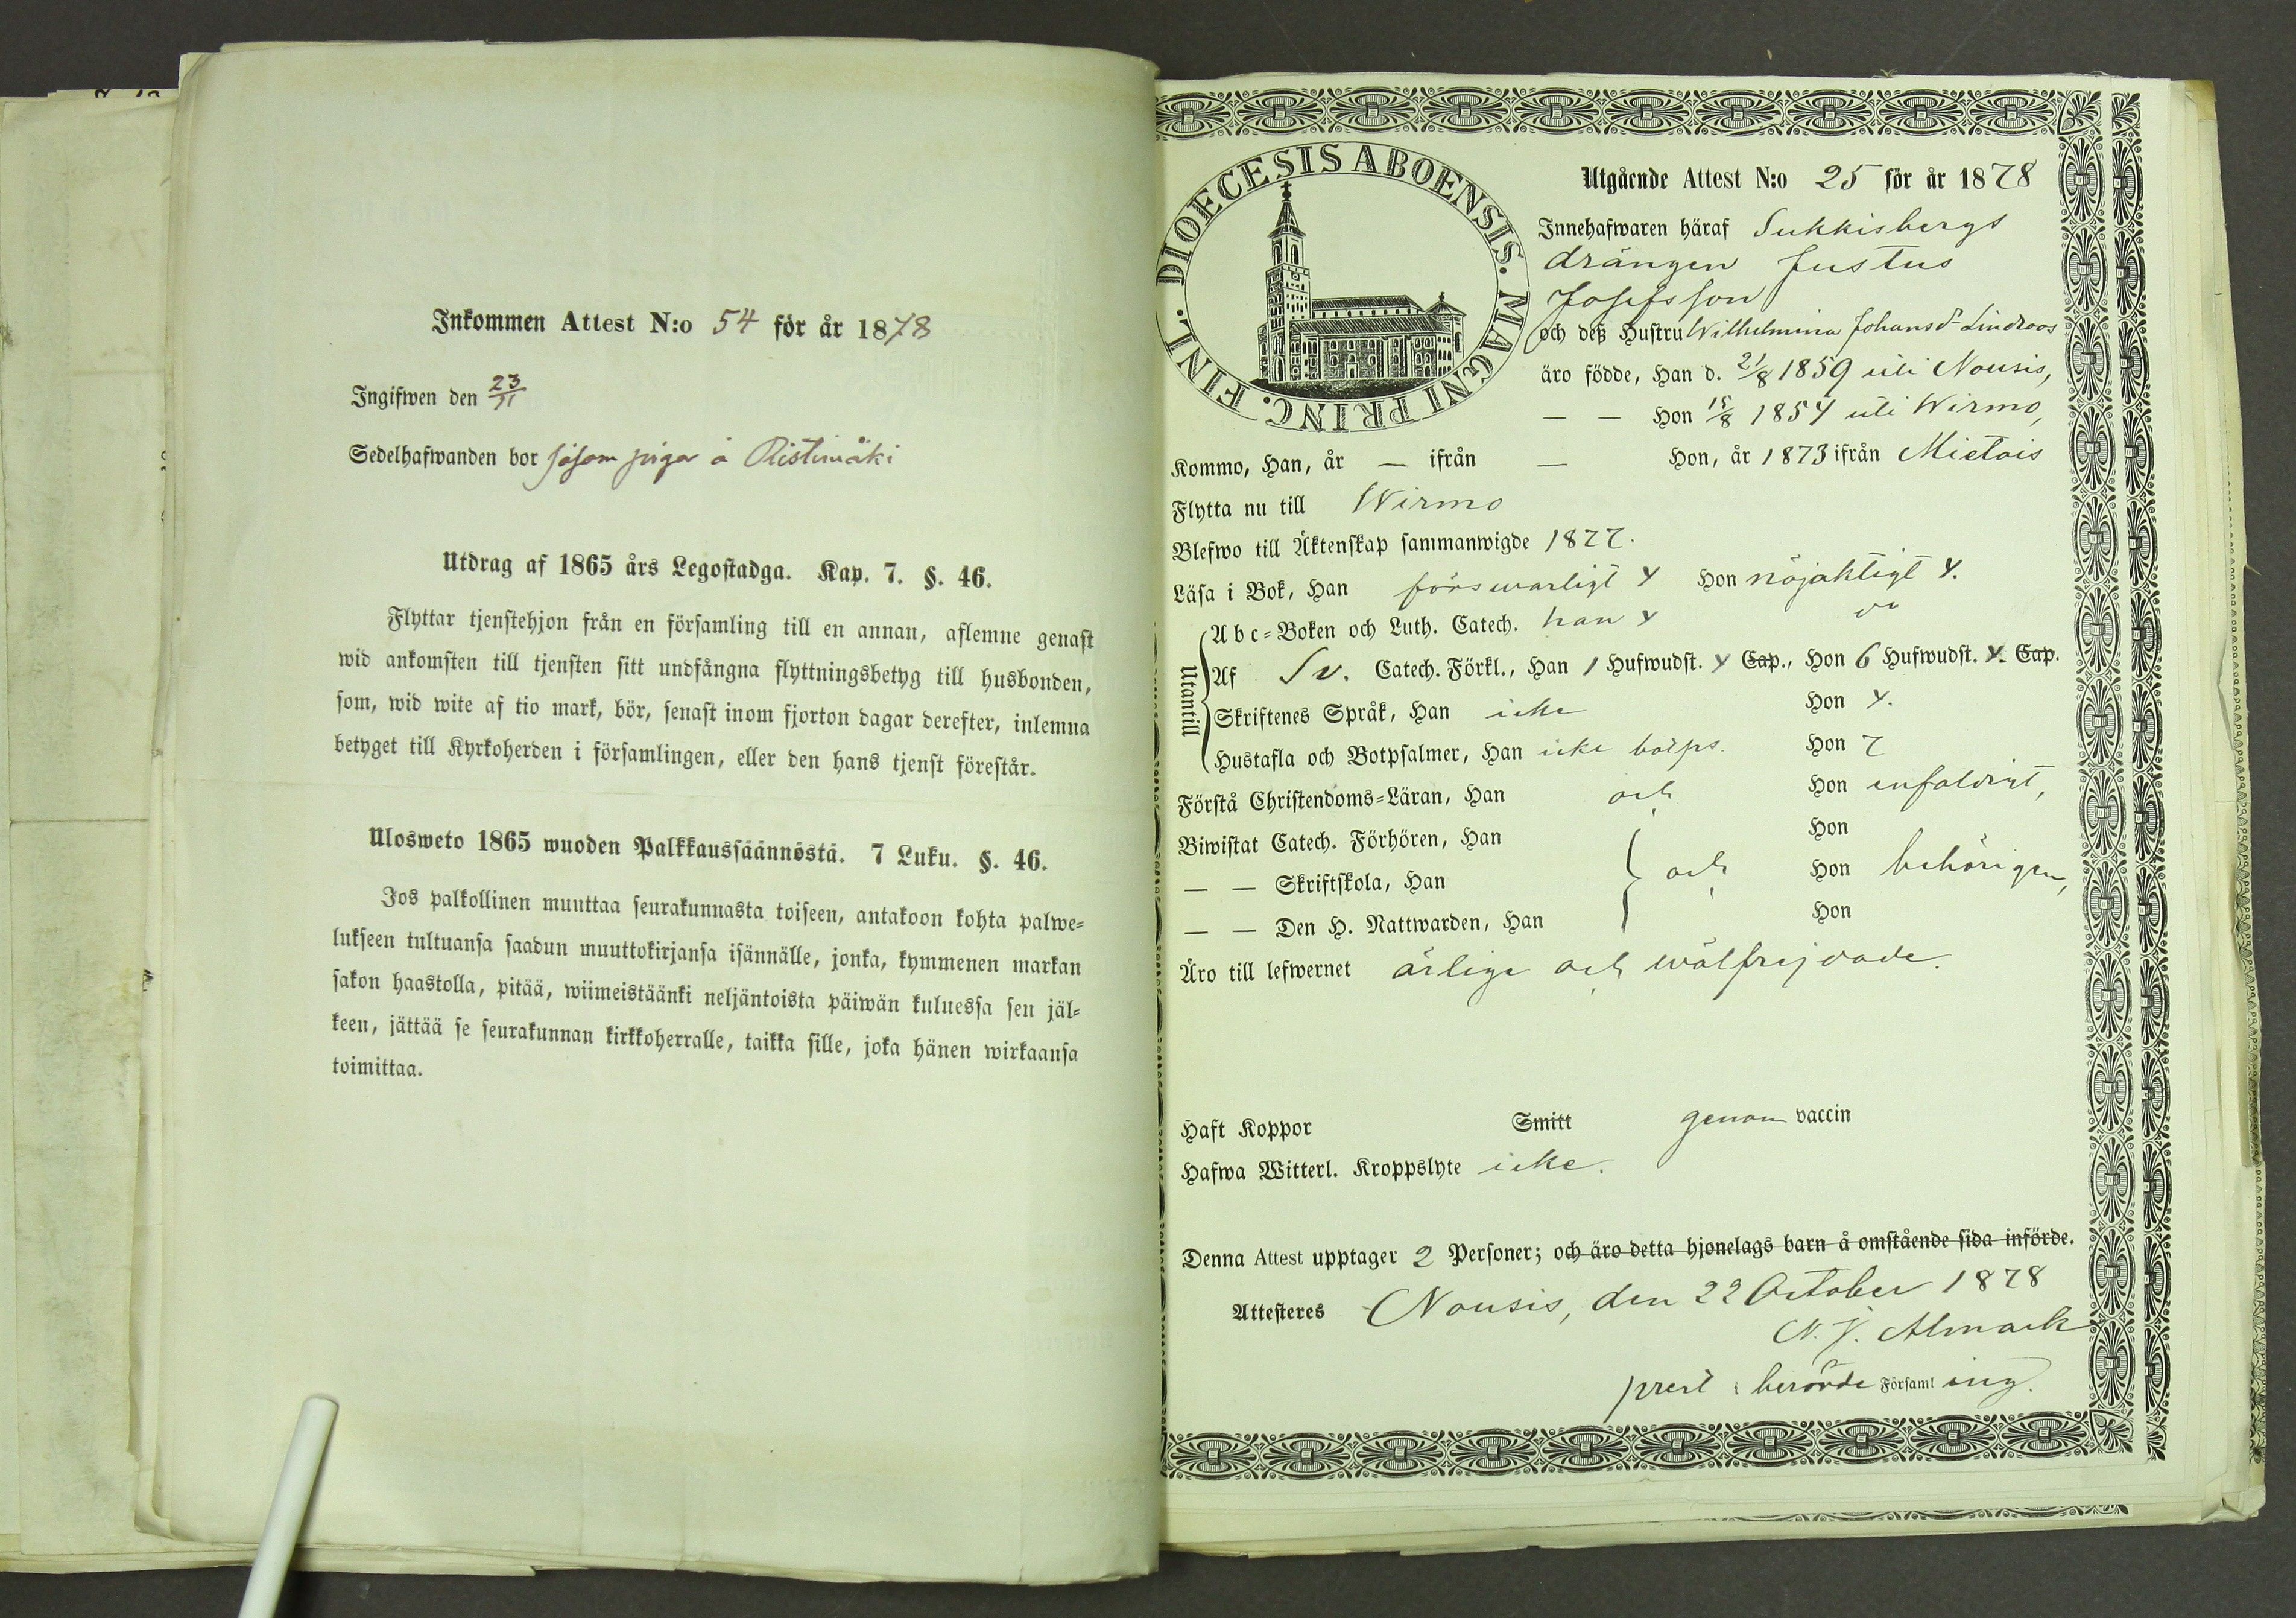 Inkommen Attest N:o 54 för år 1878
Ingifwen den 23/11
Sedelhafwanden bor såsom piga å Ristimäki
Utdrag af 1865 års Legostadga. Kap. 7. §. 46.
Flyttar tjenstehjon från en församling till en annan, aflemne genast
wid ankomsten till tjensten sitt undfångna flyttningsbetyg till husbonden,
som, wid wite af tio mark, bör, senast inom fjorton dagar derefter, inlemna
betyget till Kyrkoherden i församlingen, eller den hans tjenst förestår.
Ulosweto 1865 wuoden Palkkaussäännöstä. 7 Luku. §. 46.
Jos palkollinen muuttaa seurakunnasta toiseen, antakoon kohta palwe-
lukseen tultuansa saadun muuttokirjansa isännälle, jonka, kymmenen markan
sakon haastolla, pitää, wiimeistäänki neljäntoista päiwän kuluessa sen jäl-
keen, jättää se seurakunnan kirkkoherralle, taikka sille, joka hänen wirkaansa
toimittaa.
DIOECESIS ABOENSIS. MAGNI PRINC. FINL.
Utgående Attest N:o 25 för år 1878
Innehafwaren häraf Sukkisbergs
drängen Justus
Josefsson
och deß Hustru Wilhelmina Johansd:r Lindroos
äro födde, Han d. 21/8 1859 uti Nousis,
— — Hon 15/8 1854 uti Wirmo,
Kommo, Han, år — ifrån — Hon, år 1873 ifrån Mietois
Flytta nu till Wirmo
Blefwo till Äktenskap sammanwigde 1877.
Läsa i Bok, Han försvarligt Y Hon nöjaktigt Y.
Utantill
Abc-Boken och Luth. Catech. han Y
Af Sv. Catech. Förkl., Han 1 Hufwudst. Y Cap., Hon 6 Hufwudst. Y. Cap.
Skriftenes Språk, Han icke Hon Y.
Hustafla och Botpsalmer, Han icke botps. Hon 7
Förstå Christendoms-Läran, Han och Hon enfaldigt,
Biwistat Catech. Förhören, Han Hon
— — Skriftskola, Han och Hon behörigen,
— — Den H. Nattwarden, Han Hon
Äro till lefwernet ärliga och wälfrejdade.
Haft Koppor Smitt genom vaccin
Hafwa Witterl. Kroppslyte icke.
Denna Attest upptager 2 Personer; och äro detta hjonelags barn å omstående sida införde.
Attesteres Nousis, den 22 October 1878
N. J. Almark
prest i berörde Församl ing.